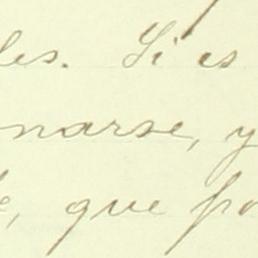 les. Si es
narse, y
e, que po